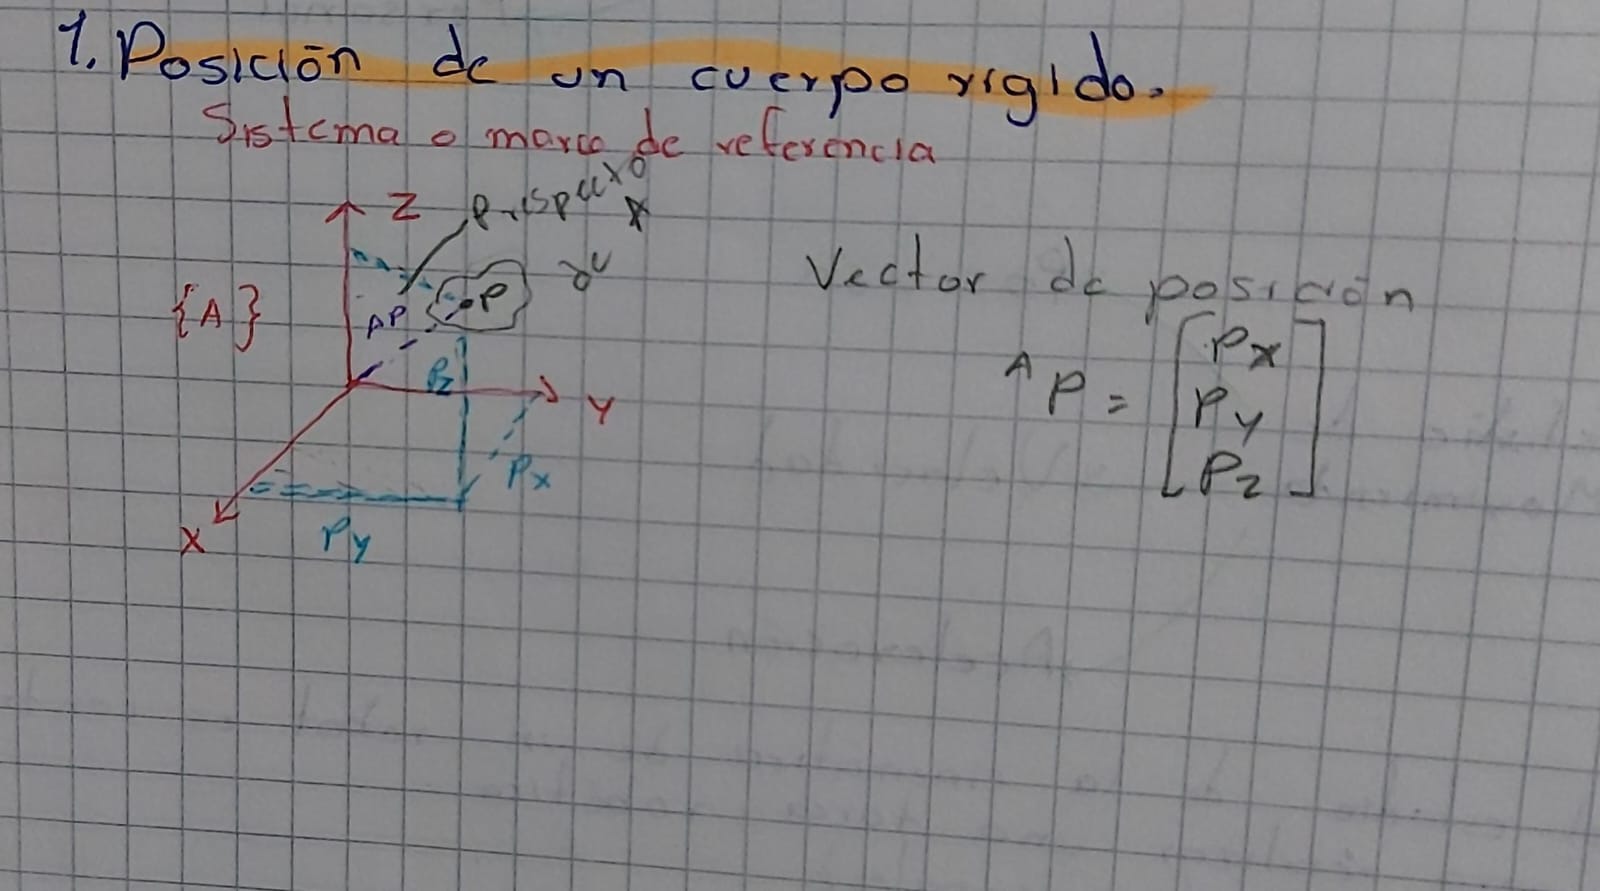 1. Posición de un cuerpo rígido.
Sistema o marco de referencia
Z
P respecto
{A}
AP
P
Vector de posición
Pz
Y
A P = [Px
Py
Pz]
Px
X
Py